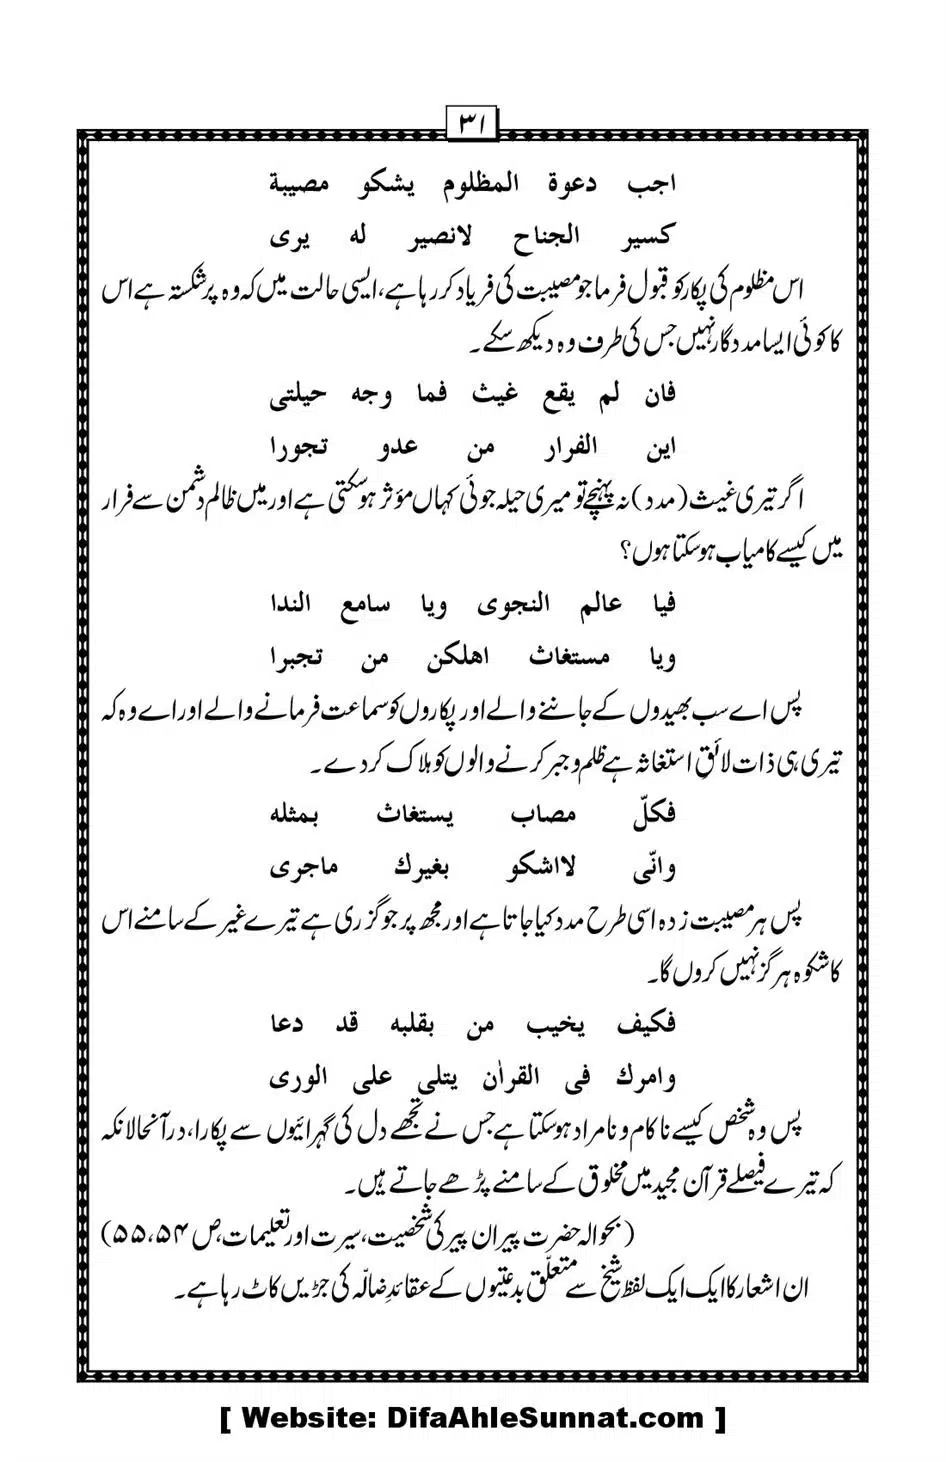 ۳۱
اجب دعوة المظلوم يشكو مصيبة
كسير الجناح لانصير له يرى
اس مظلوم کی پکار کو قبول فرما جو مصیبت کی فریاد کر رہا ہے، ایسی حالت میں کہ وہ پرشکستہ ہے اس
کا کوئی ایسا مددگار نہیں جس کی طرف وہ دیکھ سکے۔
فان لم يقع غيث فما وجه حيلتى
اين الفرار من عدو تجورا
اگر تیری غیث (مدد) نہ پہنچے تو میری حیلہ جوئی کہاں مؤثر ہوسکتی ہے اور میں ظالم دشمن سے فرار
میں کیسے کامیاب ہوسکتا ہوں؟
فيا عالم النجوى ويا سامع الندا
ويا مستغاث اهلكن من تجبرا
پس اے سب بھیدوں کے جاننے والے اور پکاروں کو سماعت فرمانے والے اور اے وہ کہ
تیری ہی ذات لائقِ استغاثہ ہے ظلم وجبر کرنے والوں کو ہلاک کردے۔
فكلّ مصاب يستغاث بمثله
وانّى لااشكو بغيرك ماجرى
پس ہر مصیبت زدہ اسی طرح مدد کیا جاتا ہے اور مجھ پر جو گزری ہے تیرے غیر کے سامنے اس
کا شکوہ ہرگز نہیں کروں گا۔
فكيف يخيب من بقلبه قد دعا
وامرك فى القراٰن يتلى على الورى
پس وہ شخص کیسے ناکام ونامراد ہوسکتا ہے جس نے تجھے دل کی گہرائیوں سے پکارا، درآنحالانکہ
کہ تیرے فیصلے قرآن مجید میں مخلوق کے سامنے پڑھے جاتے ہیں۔
(بحوالہ حضرت پیران پیر کی شخصیت، سیرت اور تعلیمات، ص ۵۵،۵۴)
ان اشعار کا ایک ایک لفظ شیخ سے متعلّق بدعتیوں کے عقائدِ ضالّہ کی جڑیں کاٹ رہا ہے۔
[ Website: DifaAhleSunnat.com ]